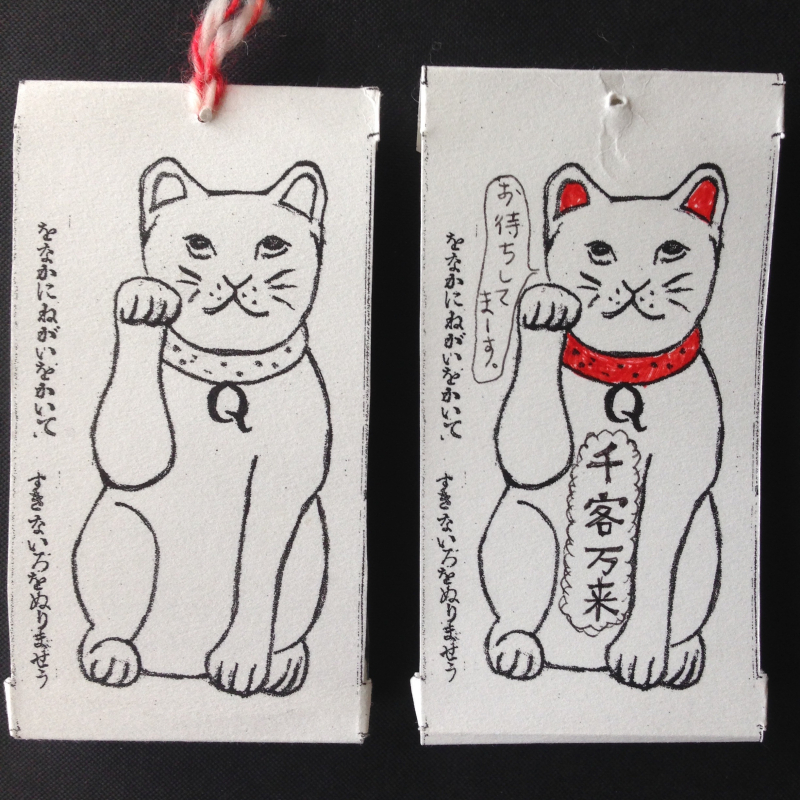 Q
をなかにねがいをかいて、
すきないろをぬりませう
千客万来
Q
お待ちして
まーす。
をなかにねがいをかいて、
すきないろをぬりませう